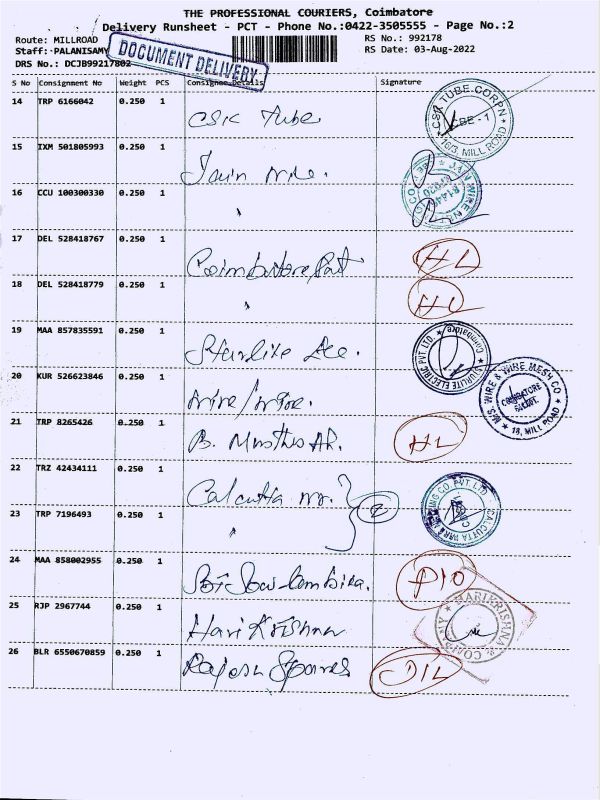 THE PROFESSIONAL COURIERS, Coimbatore
Delivery Runsheet - PCT - Phone No.:0422-3505555 - Page No.:2
Route: MILLROAD RS No.: 992178
Staff: PALANISAMY RS Date: 03-Aug-2022
DOCUMENT DELIVERY
DRS No.: DCJB99217802
S No Consignment No Weight PCS Consignee Details Signature
14 TRP 6166042 0.250 1
CSK Tube
CSK TUBE CORPN CBE - 1 16/3, MILL ROAD
15 IXM 501805993 0.250 1
Jain wire.
16 CCU 100300330 0.250 1
"
17 DEL 528418767 0.250 1
Coimbatore HL
18 DEL 528418779 0.250 1
" HL
19 MAA 857835591 0.250 1
Sturlite Ele.
STURLITE ELECTRIC PVT LTD. Coimbatore
20 KUR 526623846 0.250 1
wire/wire.
M/S. WIRE & WIRE MESH CO COIMBATORE 18, MILL ROAD
21 TRP 8265426 0.250 1
B. HL
22 TRZ 42434111 0.250 1
Calcutta
CALCUTTA CO. PVT LTD
23 TRP 7196493 0.250 1
"
24 MAA 858002955 0.250 1
Sri
25 RJP 2967744 0.250 1
Hari Krishna
HARIKRISHNA & COMPANY
26 BLR 6550670859 0.250 1
Rajesh Spares D/L